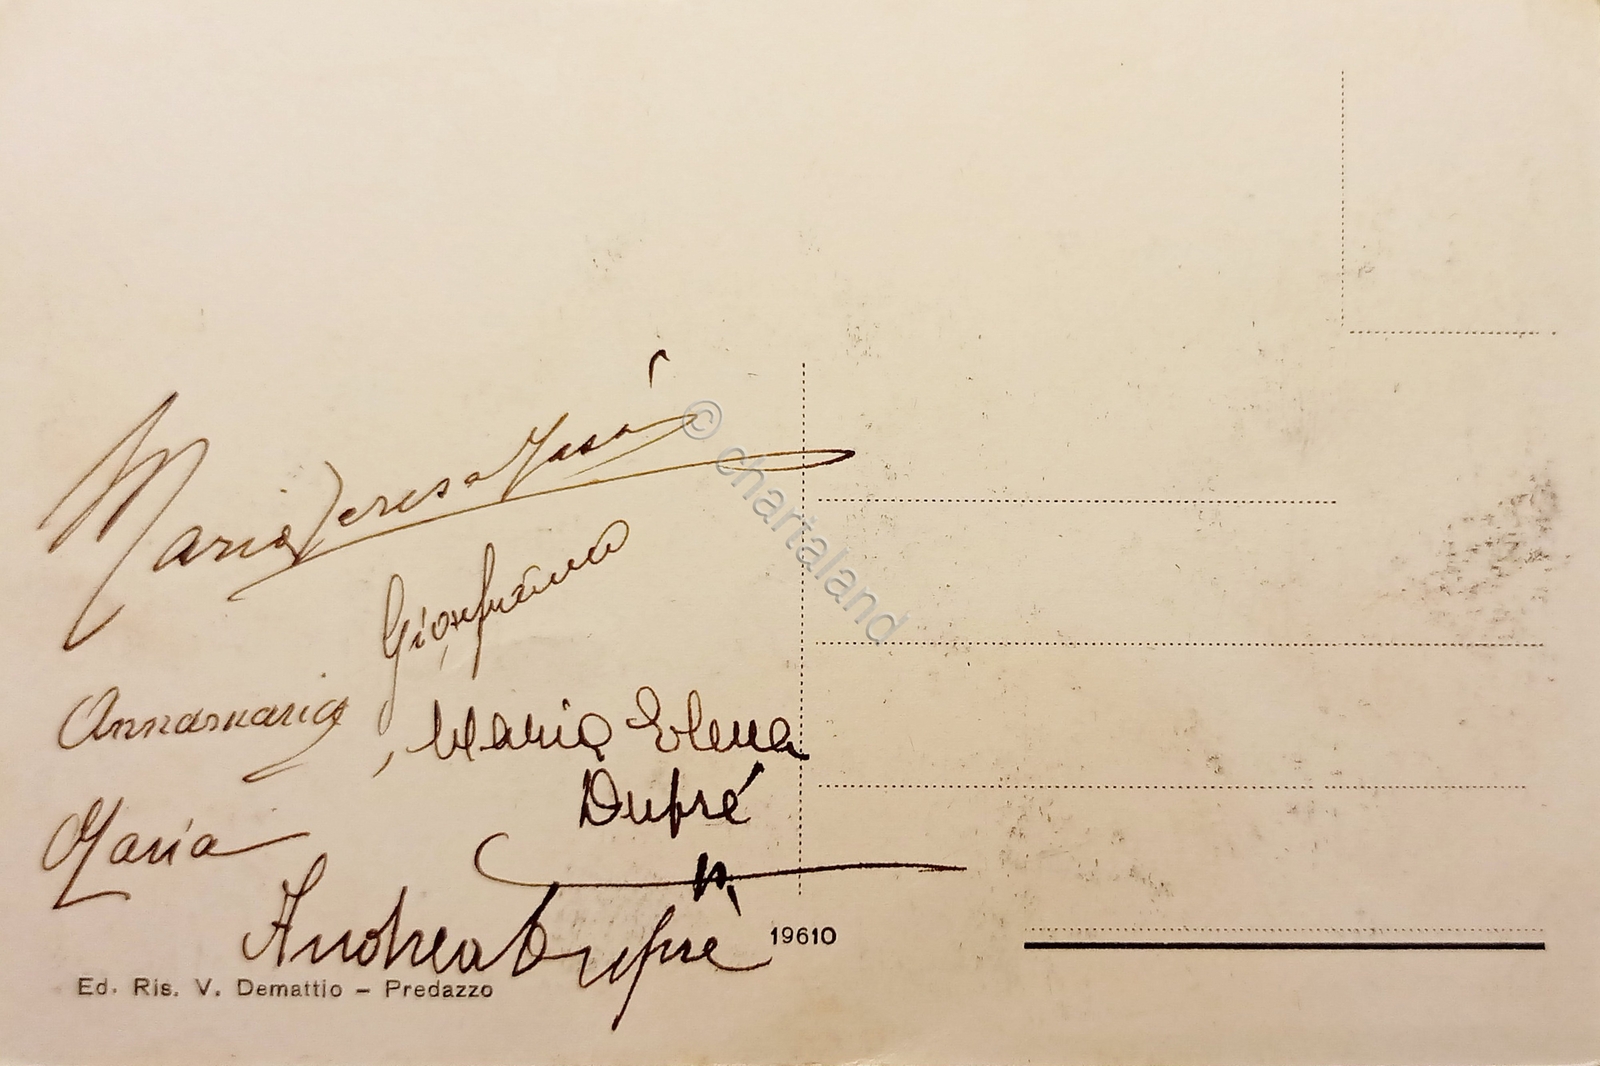 Maria Teresa
Gianfranco
Annamaria
, Maria Elena
Dupré
Maria
Andrea Dupré
19610
Ed. Ris. V. Demattio – Predazzo
© chartaland